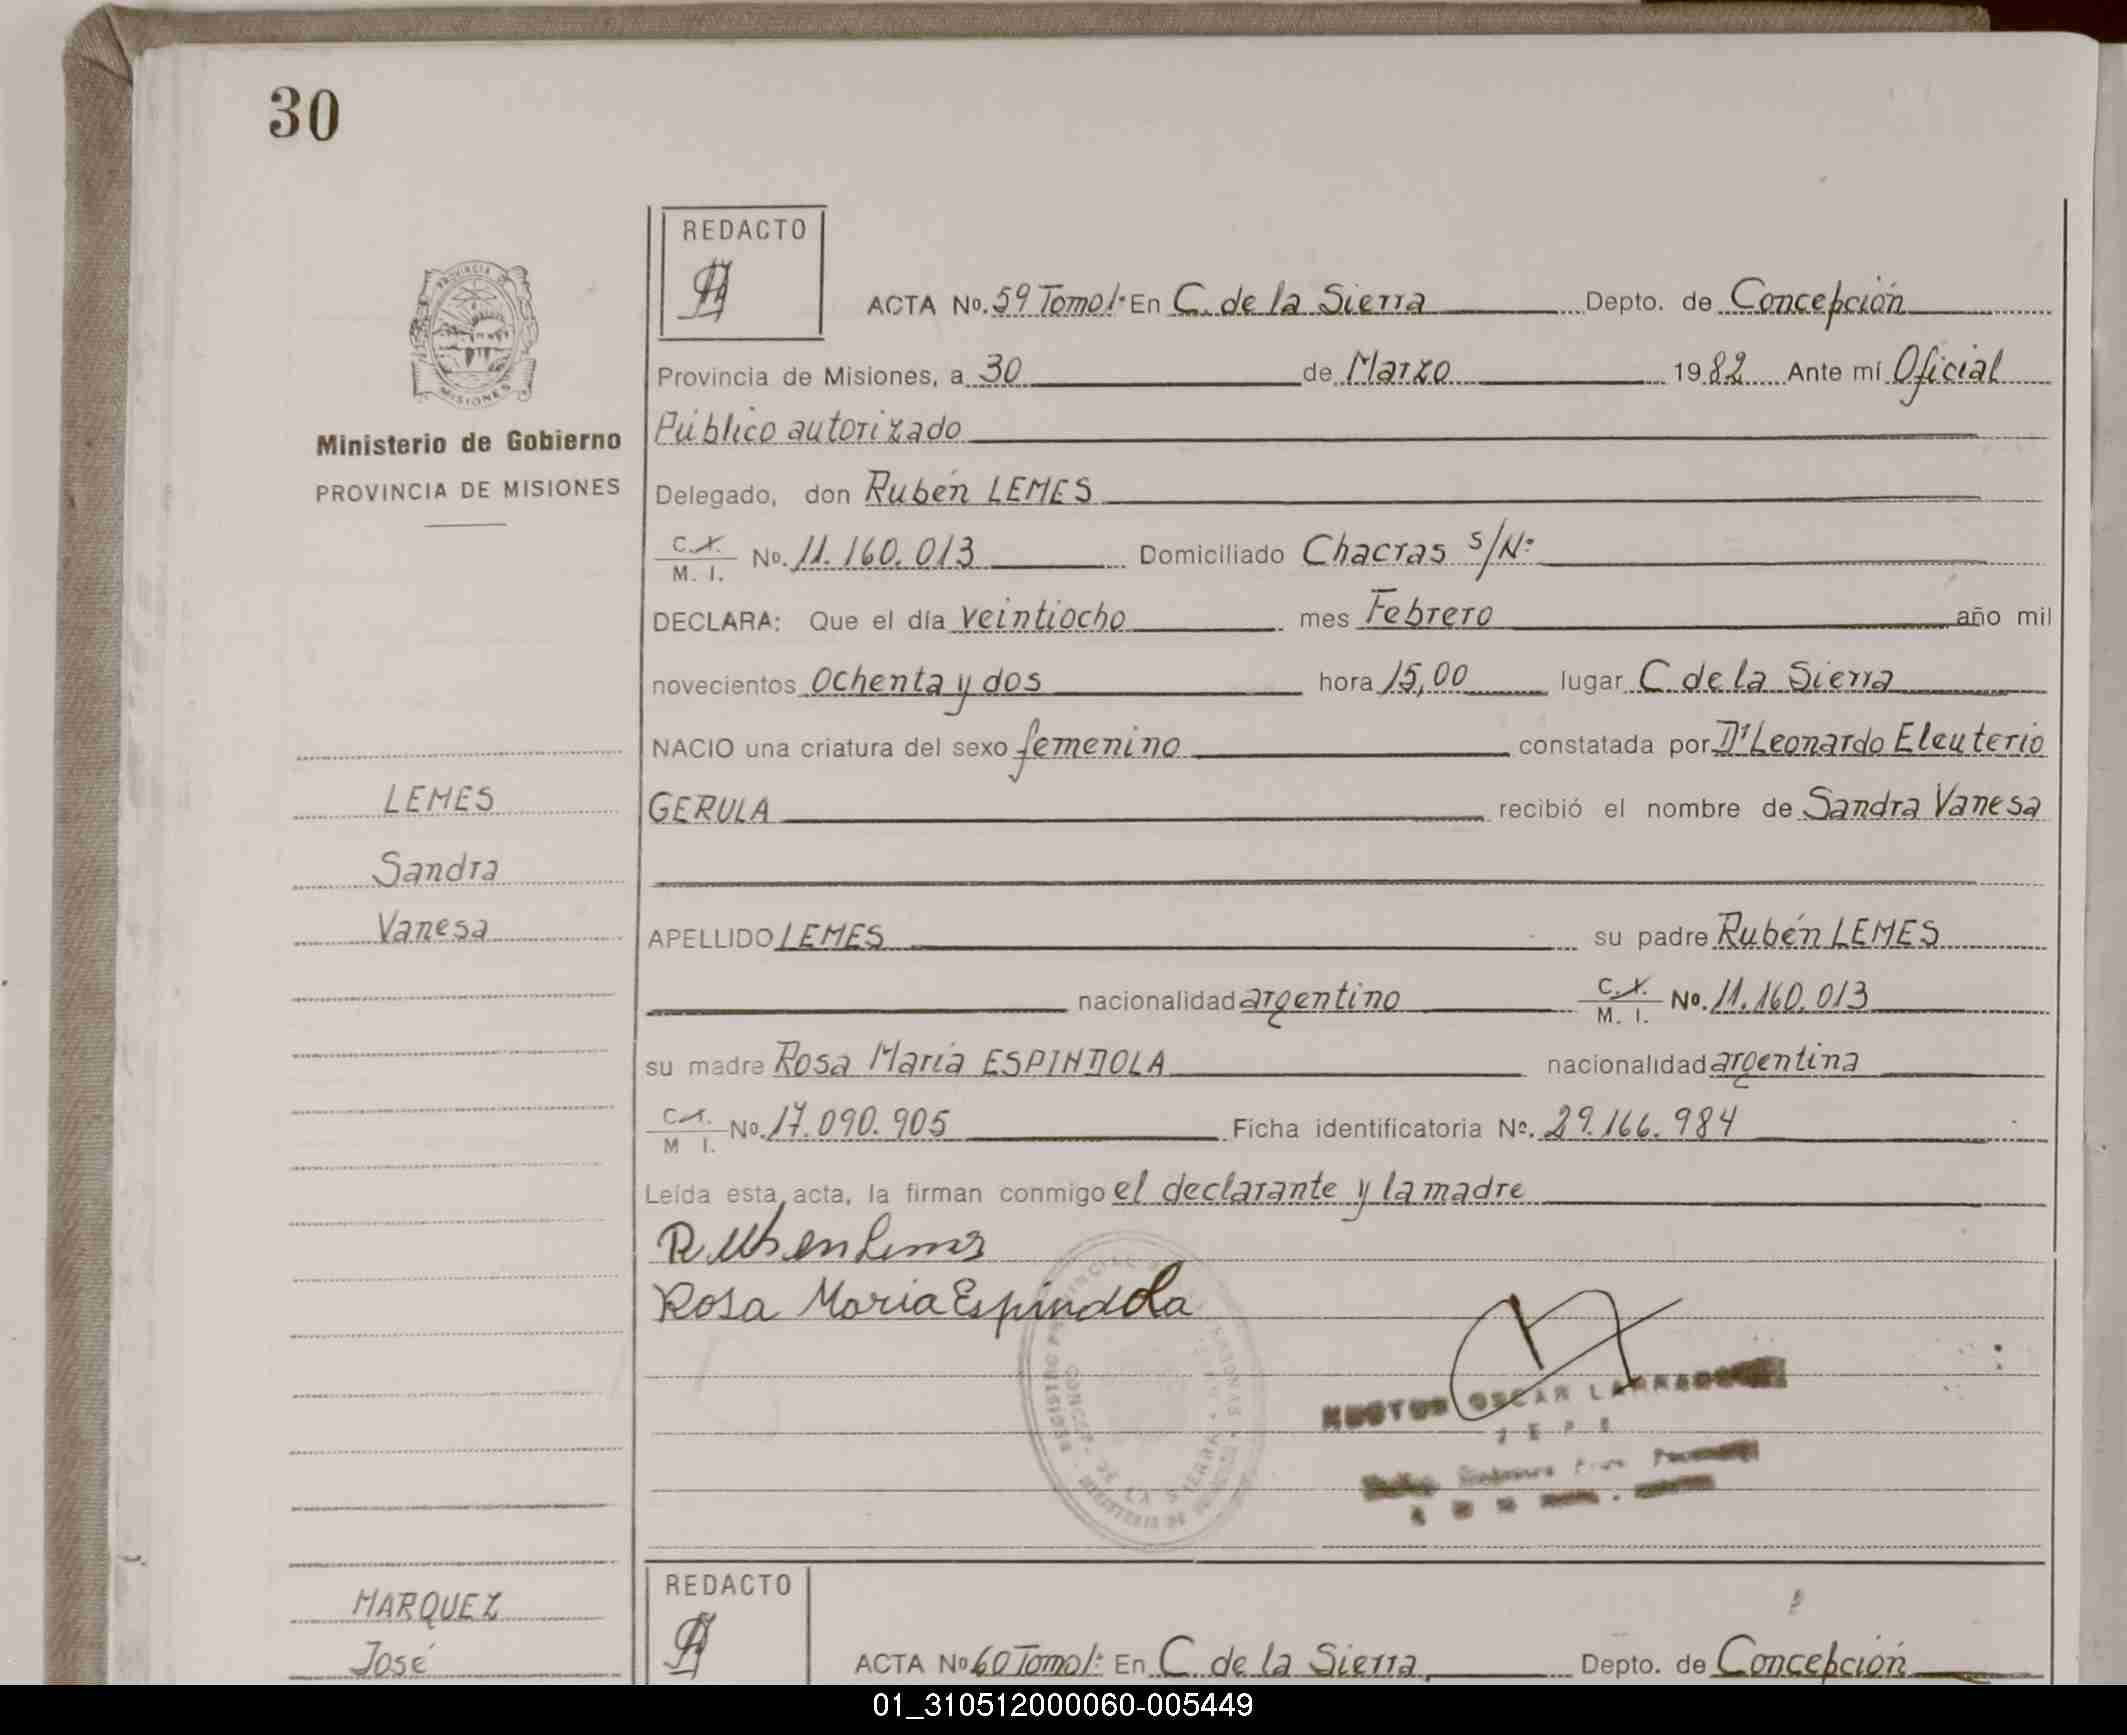 30
REDACTO
ACTA No. 59 Tomo 1º En C. de la Sierra Depto. de Concepción
PROVINCIA DE
MISIONES
Provincia de Misiones, a 30 de Marzo 1982 Ante mí Oficial
Ministerio de Gobierno
PROVINCIA DE MISIONES
Público autorizado
Delegado, don Rubén LEMES
C.I. M. I. No. 11.160.013 Domiciliado Chacras S/Nº
DECLARA: Que el día veintiocho mes Febrero año mil
novecientos ochenta y dos hora 15,00 lugar C. de la Sierra
NACIO una criatura del sexo femenino constatada por Dr Leonardo Eleuterio
LEMES
GERULA recibió el nombre de Sandra Vanesa
Sandra
Vanesa
APELLIDO LEMES su padre Rubén LEMES
nacionalidad argentino C.I. M. I. No. 11.160.013
su madre Rosa María ESPINDOLA nacionalidad argentina
C.I. M I. No. 17.090.905 Ficha identificatoria No. 29.166.984
Leída esta acta, la firman conmigo el declarante y la madre
Ruben Lemes
Rosa Maria Espindola
REGISTRO PROVINCIAL
DE LA SIERRA
MINISTERIO DE
OSCAR
JEFE
MARQUEZ
José
REDACTO
ACTA No 60 Tomo 1º En C. de la Sierra Depto. de Concepción
01_310512000060-005449